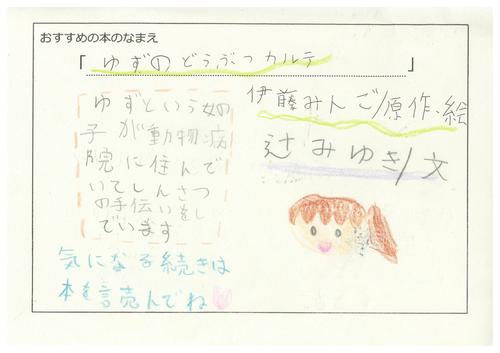 おすすめの本のなまえ
「ゆずのどうぶつカルテ」
伊藤みんご/原作、絵
辻みゆき/文
ゆずという女の
子が動物病
院に住んで
いてしんさつ
の手伝いをし
ています
気になる続きは
本を読んでね